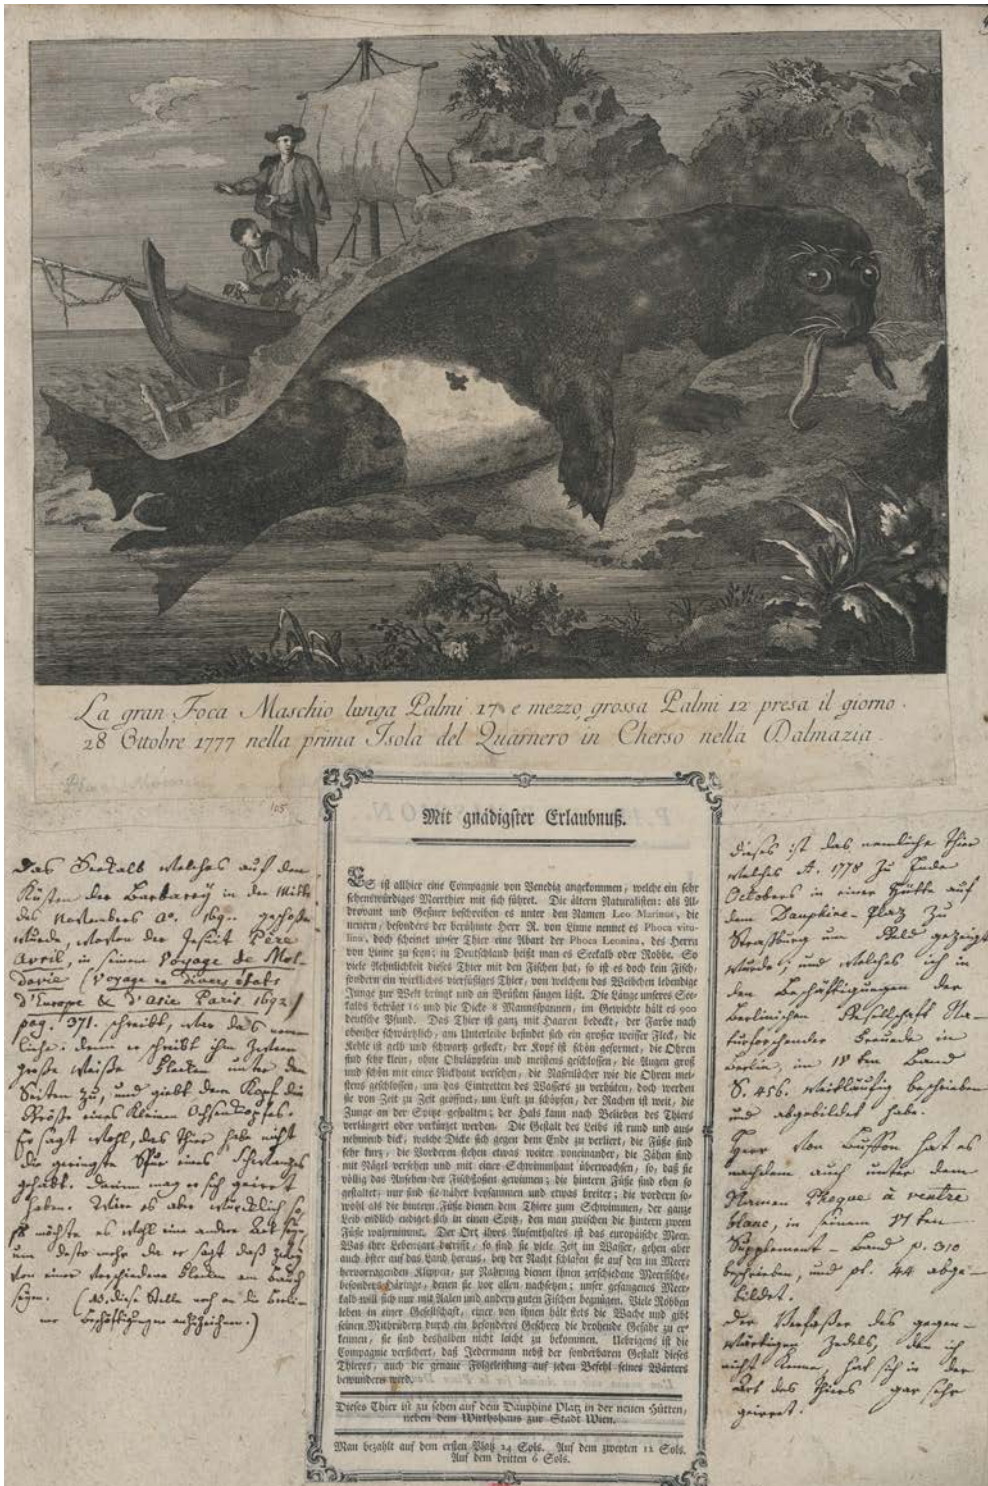 La gran Foca Maschio lunga Palmi 17 e mezzo grossa Palmi 12 presa il giorno
28 Ottobre 1777 nella prima Isola del Quarnero in Cherso nella Dalmazia.
105
Das Seekalb welches auf den
Küsten der Barbarey in der Mitte
des Novembers Aº. 169.. geschossen
wurde, der Jesuit Père
Avril, in seinem Voyage de Mol-
davie (Voyage en divers états
d'Europe & d'Asie Paris 1692)
pag. 371. schreibt, war das nem-
liche: denn er schreibt ihm
große weiße Flecken unter den
Seiten zu, und giebt dem Kopf die
Größe eines kleinen Ochsenkopfes.
Er sagt wohl, das Thier habe nicht
die geringste Spur eines Schwanzes
gehabt. darinn mag er sich geirrt
haben. Wäre es aber würklich so,
so möchte es wohl eine andere Art seyn
um desto mehr da er sagt daß
von einer Flecken am Bauch
seyen. (NB. diese Stelle noch an die Berlini-
Beschäftigungen anzuzeichnen.)
Mit gnädigster Erlaubnuß.
ES ist allhier eine Compagnie von Venedig angekommen, welche ein sehr
sehenswürdiges Meerthier mit sich führet. Die ältern Naturalisten: als Al-
drovant und Geßner beschreiben es unter den Namen Leo Marinus, die
neuern, besonders der berühmte Herr R. von Linne nennet es Phoca vitu-
lina, doch scheinet unser Thier eine Abart der Phoca Leonina, des Herrn
von Linne zu seyn; in Deutschland heißt man es Seekalb oder Robbe. So
viele Aehnlichkeit dieses Thier mit den Fischen hat, so ist es doch kein Fisch,
sondern ein wirkliches vierfüßiges Thier, von welchem das Weibchen lebendige
Junge zur Welt bringt und an Brüsten saugen läßt. Die Länge unseres See-
kalbs beträgt 16 und die Dicke 8 Mannsspannen, im Gewichte hält es 900
deutsche Pfund. Das Thier ist ganz mit Haaren bedeckt, der Farbe nach
obenher schwärtzlich, am Unterleibe befindet sich ein großer weisser Fleck, die
Kehle ist gelb und schwartz gefleckt, der Kopf ist schön geformet, die Ohren
sind sehr klein, ohne Ohrläpplein und meistens geschlossen, die Augen groß
und schön mit einer Nickhaut versehen, die Nasenlöcher wie die Ohren mei-
stens geschlossen, um das Eintretten des Wassers zu verhüten, doch werden
sie von Zeit zu Zeit geöffnet, um Luft zu schöpfen, der Rachen ist weit, die
Zunge an der Spitze gespalten; der Hals kann nach Belieben des Thiers
verlängert oder verkürtzet werden. Die Gestalt des Leibs ist rund und aus-
nehmend dick, welche Dicke sich gegen dem Ende zu verliert, die Füße sind
sehr kurz, die Vorderen stehen etwas weiter voneinander, die Zähen sind
mit Nägel versehen und mit einer Schwimmhaut überwachsen, so, daß sie
völlig das Ansehen der Fischfloßen gewinnen; die hintern Füße sind eben so
gestaltet, nur sind sie näher beysammen und etwas breiter; die vordern so-
wohl als die hintern Füße dienen dem Thiere zum Schwimmen, der ganze
Leib endlich endiget sich in einen Spitz, den man zwischen die hintern zween
Füße wahrnimmt. Der Ort ihres Aufenthaltes ist das europäische Meer.
Was ihre Lebensart betrifft, so sind sie viele Zeit im Wasser, gehen aber
auch öfter auf das Land heraus, bey der Nacht schlafen sie auf den im Meere
hervorragenden Klippen, zur Nahrung dienen ihnen zerschiedene Meerfische,
besonders Häringe, denen sie vor allen nachsetzen; unser gefangenes Meer-
kalb will sich nur mit Aalen und andern guten Fischen begnügen. Viele Robben
leben in einer Gesellschaft, einer von ihnen hält stets die Wache und gibt
seinen Mitbrüdern durch ein besonderes Geschrey die drohende Gefahr zu er-
kennen, sie sind deshalben nicht leicht zu bekommen. Uebrigens ist die
Compagnie versichert, daß Jedermann nebst der sonderbaren Gestalt dieses
Thieres, auch die genaue Folgeleistung auf jeden Befehl seines Wärters
bewundern werd.
Dieses Thier ist zu sehen auf dem Dauphine Platz in der neuen Hütten,
neben dem Wirthshaus zur Stadt Wien.
Man bezahlt auf dem ersten Platz 24 Sols. Auf dem zweyten 12 Sols.
Auf dem dritten 6 Sols.
Dieses ist das nemliche Thier
welches A. 1778 zu Ende
Octobers in einer Hütte auf
dem Dauphine-Platz zu
Straßburg um Geld gezeigt
wurde; und welches ich in
den Beschäftigungen der
Berlinischen Gesellschaft Na-
turforschender Freunde in
Berlin, im Band
S. 456. weitläufig beschrieben
und abgebildet habe.
Herr von Buffon hat es
nachdem auch unter dem
Namen Phoque à ventre
blanc, in seinem
Supplement-Band p. 310
beschrieben, und pl. 44 abge-
bildet.
Der Verfaßer des gegen-
wärtigen Zedels, den ich
nicht kenne, hat sich in der
Art des Thiers gar sehr
geirret.